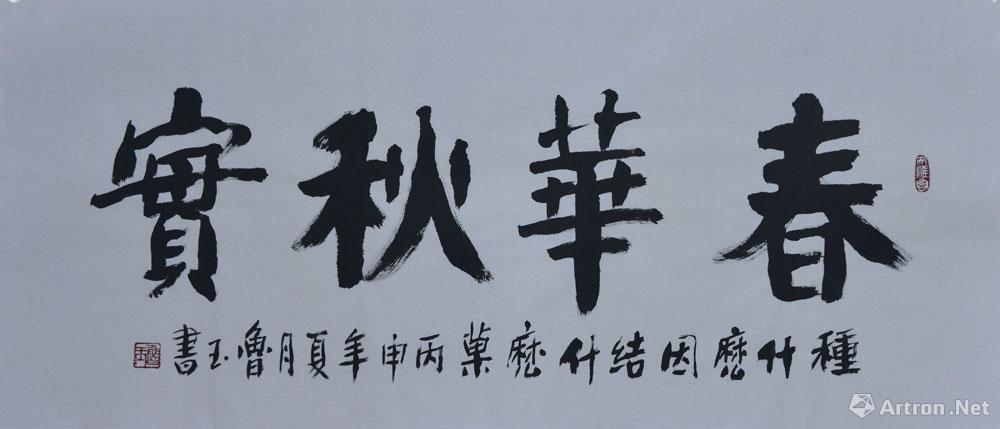 春華秋實
種什麽因結什麽菓丙申年夏月魯玉書
Artron.Net